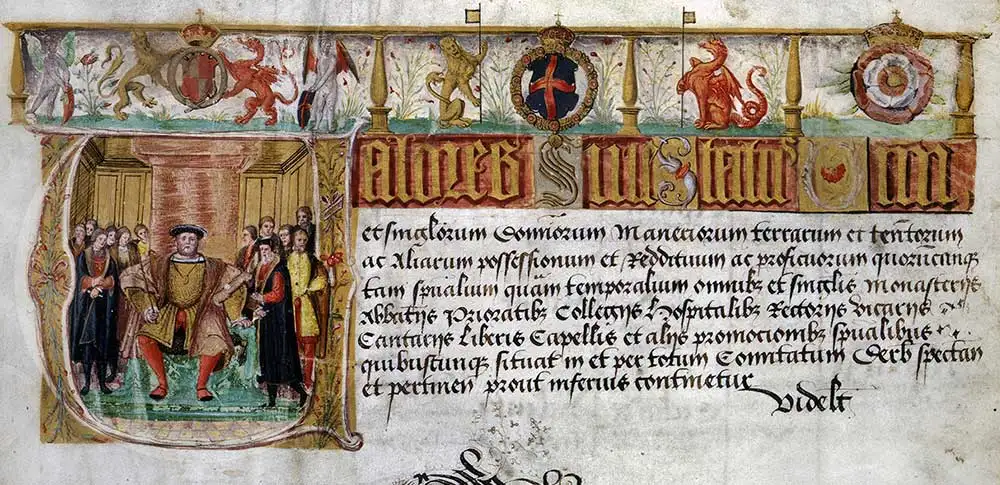 Valores Sive Status Omni
et singlorum Dominiorum Maneriorum terrarum et tentorum
ac Aliarum possessionum et Reddituum ac proficuorum quorumcunq
tam spualium quam temporalium omnibz et singlis Monasterijs
Abbatijs Prioratibz Collegijs Hospitalibz Rectorijs Vicarijs
Cantarijs Liberis Capellis et alijs promocionibz spualibus
quibuscunqz situat in et per totum Comitatum Derb spectan
et pertinen prout inferius continetur
Videlt